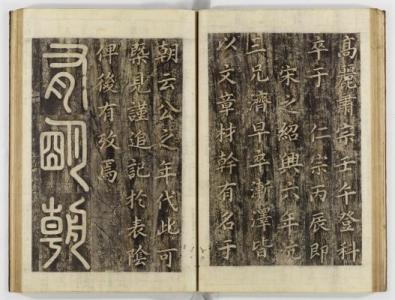 高麗肅宗壬午登科
卒于 仁宗丙辰即
宋之紹興六年元
三兄濟早卒漸澤皆
以文章材幹有名于
朝云公之年代此可
槩見謹追記於表陰
俾後有攷焉
有明朝